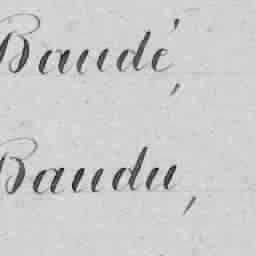 Baudé,
Baudu,